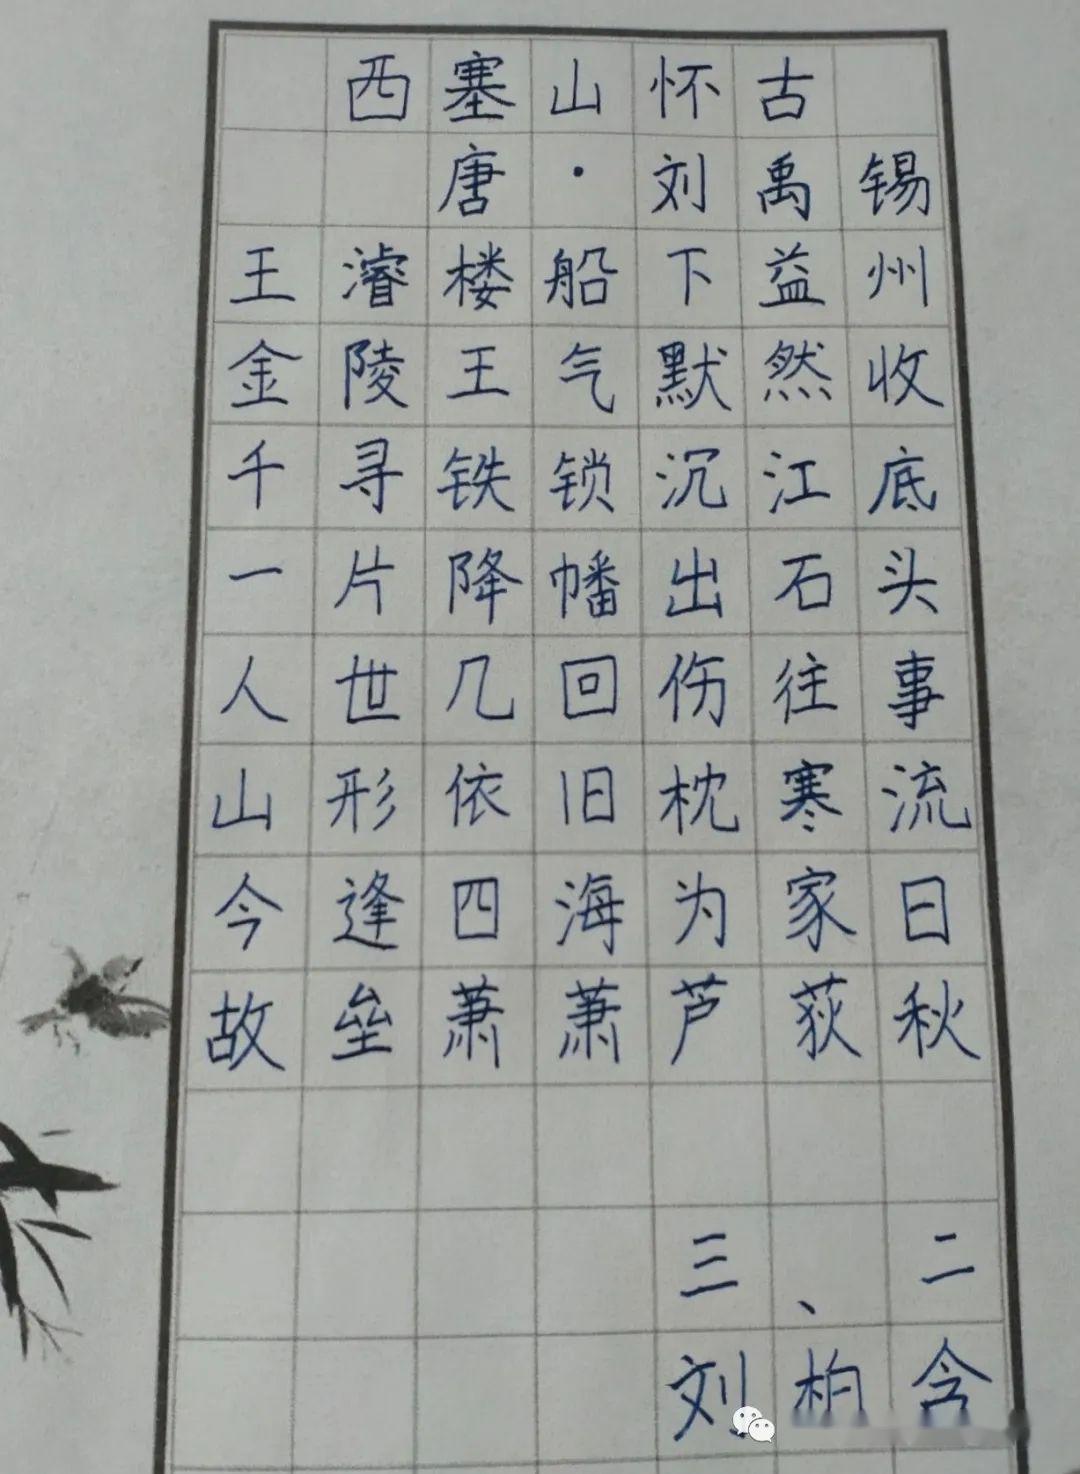 西塞山怀古
唐·刘禹锡
王濬楼船下益州
金陵王气默然收
千寻铁锁沉江底
一片降幡出石头
人世几回伤往事
山形依旧枕寒流
今逢四海为家日
故垒萧萧芦荻秋
三、二
刘柏含